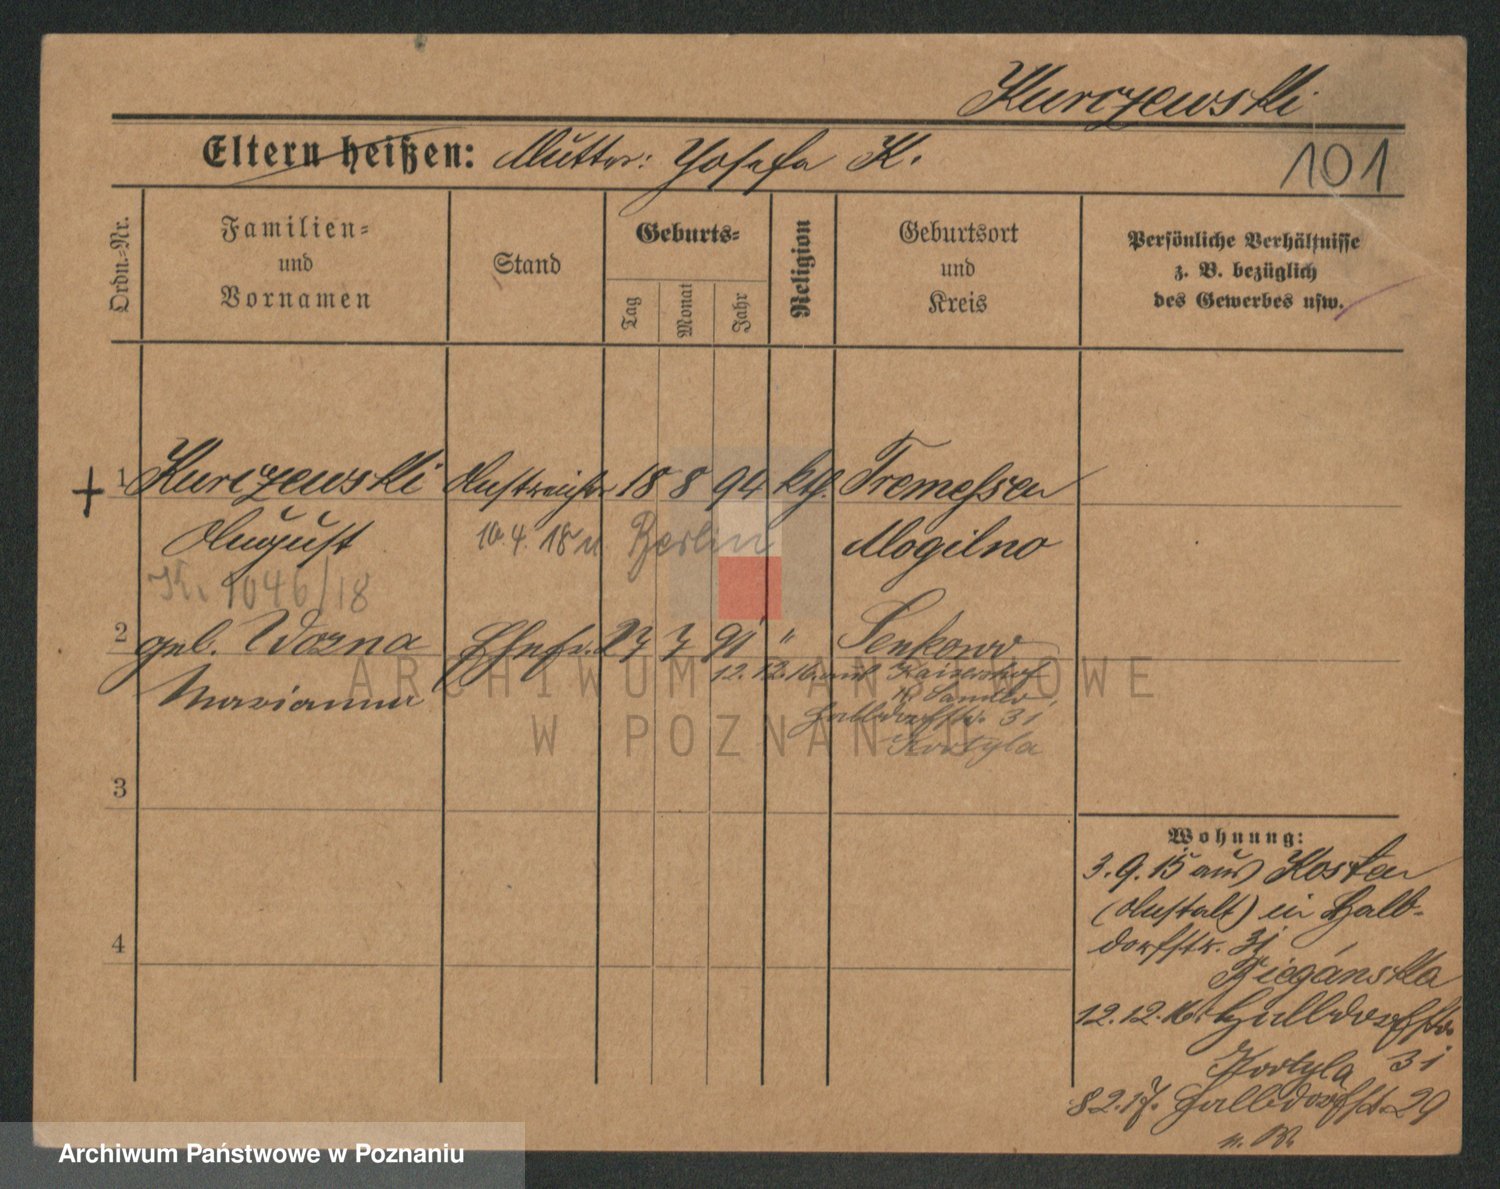 Kurczewski
101
Eltern heißen: Mutter: Josefa K.
Ordn.-Nr.
Familien-
und
Vornamen
Stand
Geburts-
Tag
Monat
Jahr
Religion
Geburtsort
und
Kreis
Persönliche Verhältnisse
z. B. bezüglich
des Gewerbes usw.
1 Kurczewski Anstreicher 18 8 94 kth. Tremessen
August 10.4.18 n. Berlin Mogilno
K. 1046/18
2 geb. Wozna Ehefr. 27 7 91 " Senkowo
Marianna 12.12.16 aus Kaisershof
Kr. Samter
Halbdorfstr. 31
Kortyla
3
4
Wohnung:
3.9.15 aus Kosten
(Anstalt) in Halb-
dorfstr. 31
Biegánska
12.12.16 Halbdorfstr.
Kortyla 31
8.2.17. Halbdorfstr. 29
b. W.
ARCHIWUM PAŃSTWOWE
W POZNANIU
Archiwum Państwowe w Poznaniu